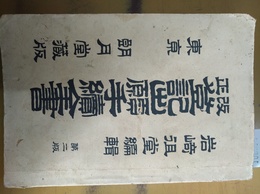 岩崎徂堂編輯
第二版
改正
登記出願手續全書
東京
朗月堂藏版